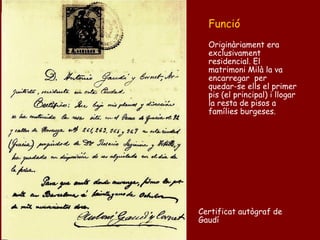 Funció
Originàriament era
exclusivament
residencial. El
matrimoni Milà la va
encarregar per
quedar-se ells el primer
pis (el principal) i llogar
la resta de pisos a
famílies burgeses.
D. Antonio Gaudí y Cornet, Ar-
quitecto, residente en esta Ciudad.
Certifico: Que bajo mis planos y dirección
se ha construido la casa sita en el Paseo de Gracia nº 92
y calle de Provenza nº 261, 263, 265 y 267 en esta ciudad
(Gracia) propiedad de Dª Rosario Segimon y
ha quedado en disposición de ser alquilada en el día de
la fecha.
Para que conste donde convenga, firmo la pre-
sente en Barcelona á
de mil novecientos doce.
Antoni Gaudí y Cornet
Certificat autògraf de
Gaudí